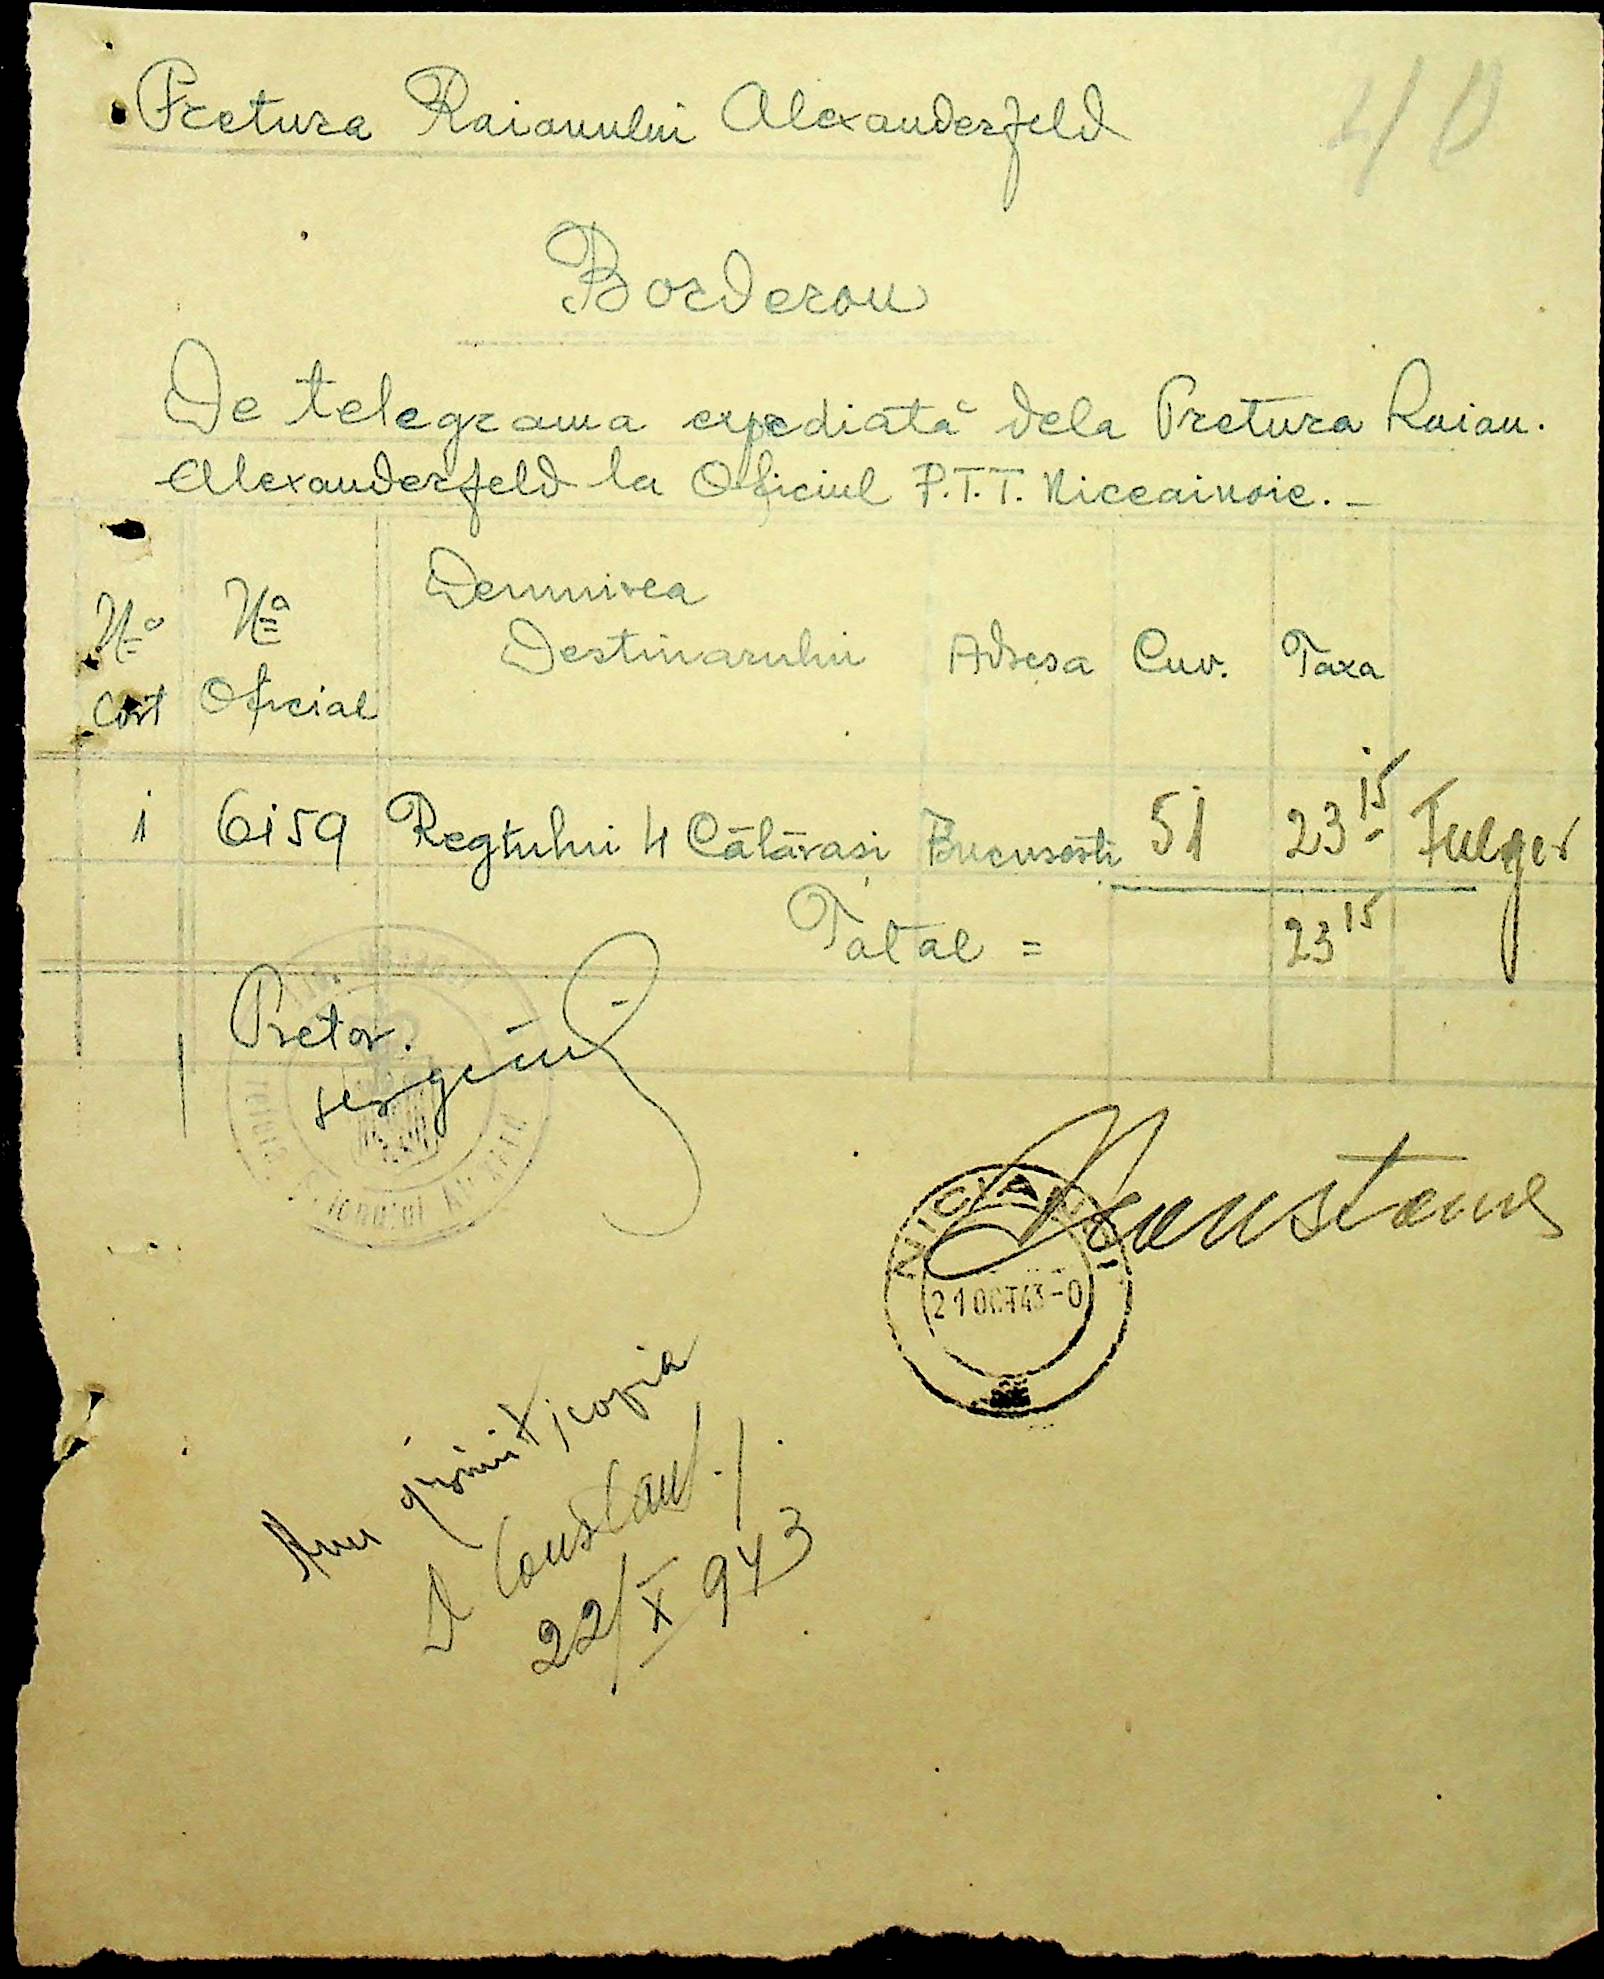 40
Pretura Raionului Alexanderfeld
Borderou
De telegrama expediată dela Pretura Raion.
Alexanderfeld la Oficiul P.T.T. Niceainoie. -
No Cort
No Oficial
Demnirea Destinarului
Adresa
Cuv.
Taxa
1 6159 Regtului 4 Călărasi Bucuresti 51 23 15 Fulger
Total = 23 15
Pretor.
21 OCT 43-0
Am primit copia
D Constant.
22/X 943